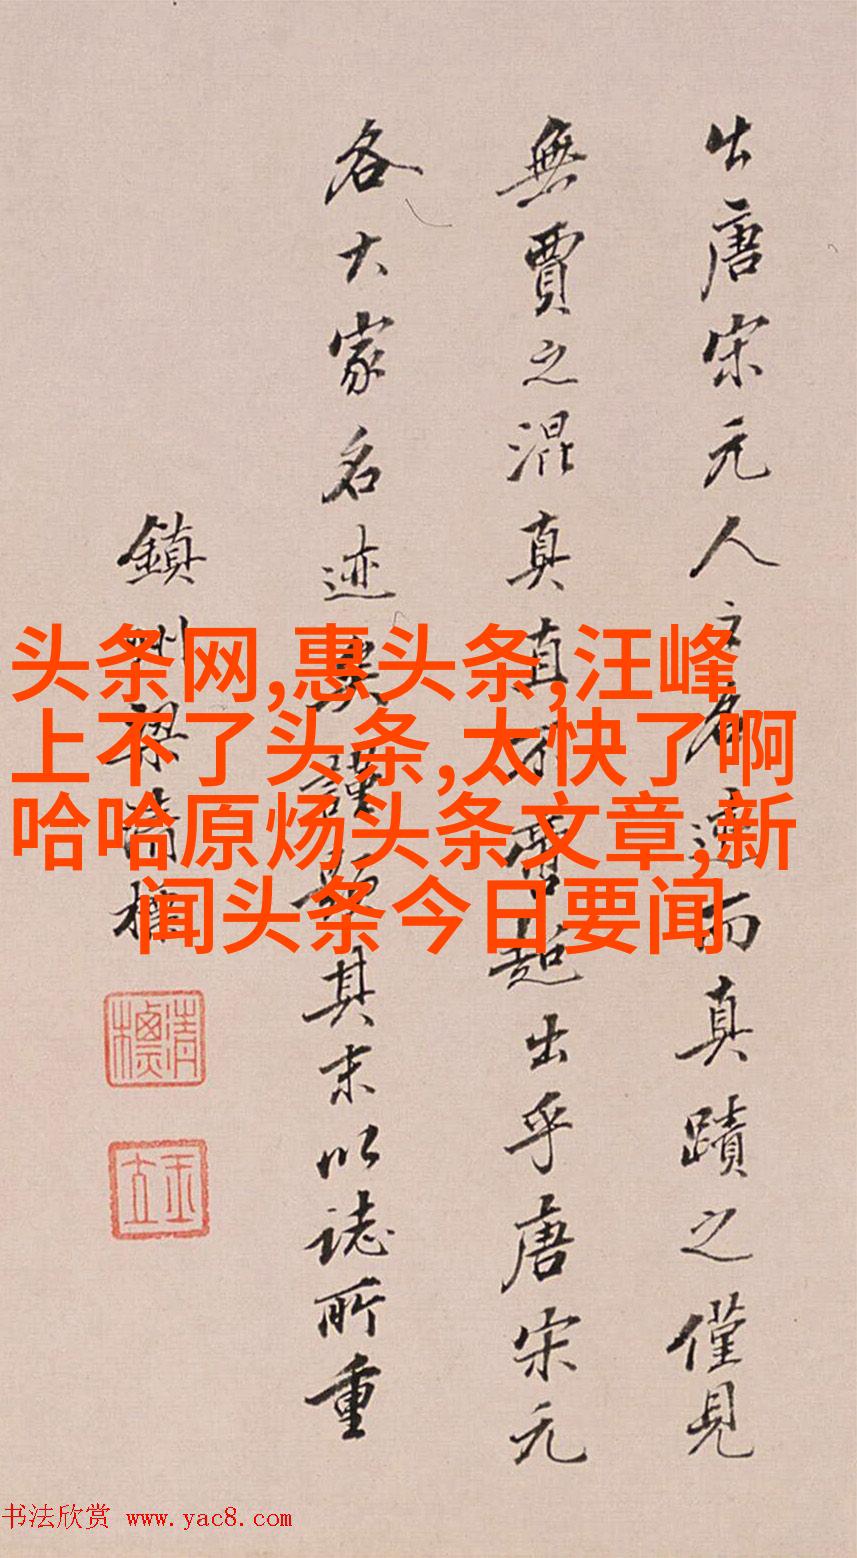 出唐宋元人之名而真蹟之僅見
無賈之混真直超出乎唐宋元
各大家名迹矣謹題其末以誌所重
鎮州梁清標
清標
玉立
头条网,惠头条,汪峰
上不了头条,太快了啊
哈哈原炀头条文章,新
闻头条今日要闻
书法欣赏 www.yac8.com